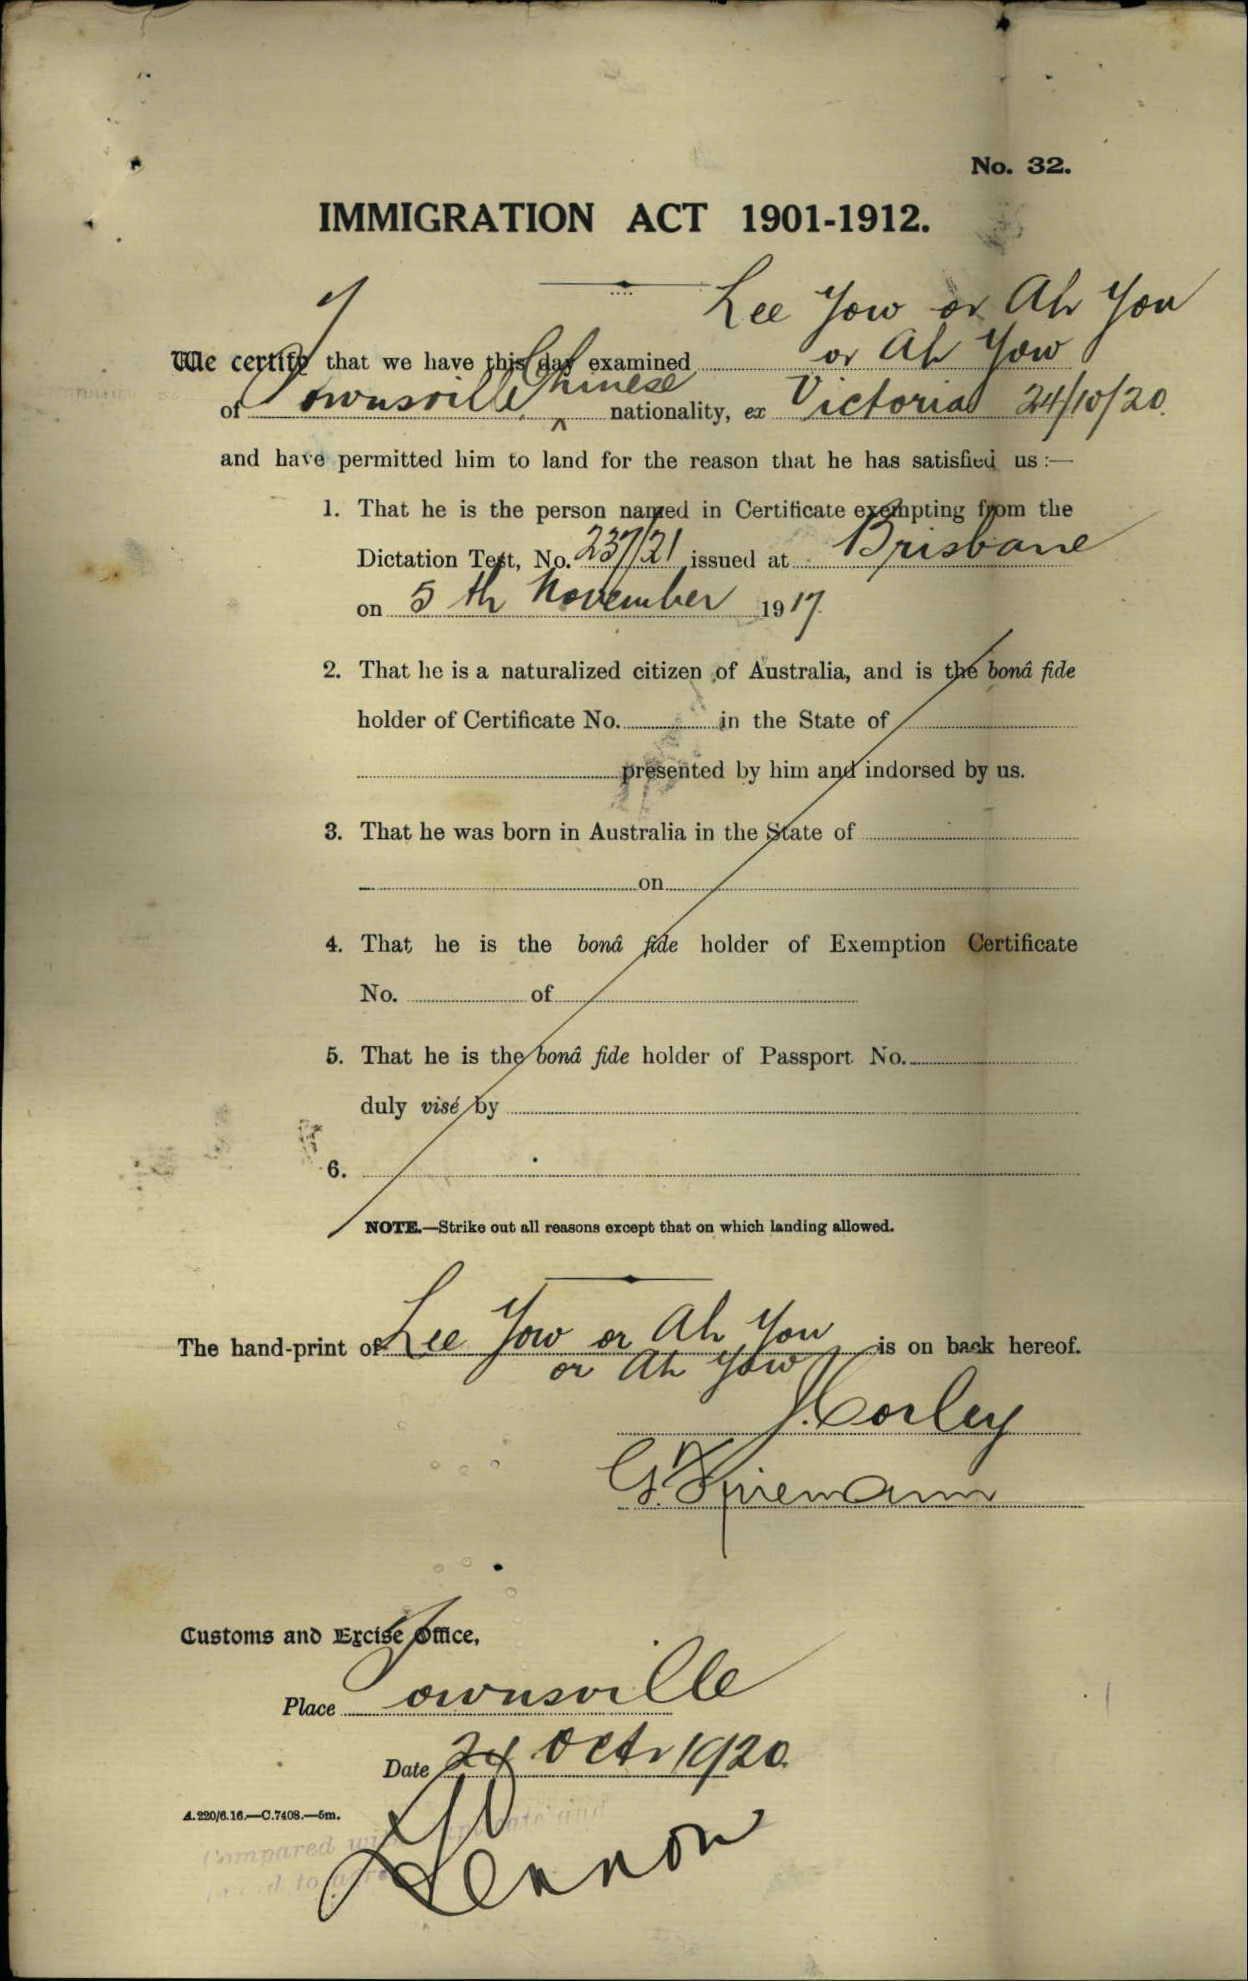 No. 32.
IMMIGRATION ACT 1901-1912.
Lee Yow or Ah You
We certify that we have this day examined or Ah Yow
of Townsville ^ Chinese nationality, ex Victoria 24/10/20
and have permitted him to land for the reason that he has satisfied us :—
1. That he is the person named in Certificate exempting from the
Dictation Test, No. 237/21 issued at Brisbane
on 5th November 1917
2. That he is a naturalized citizen of Australia, and is the bonâ fide
holder of Certificate No. in the State of
presented by him and indorsed by us.
3. That he was born in Australia in the State of
on
4. That he is the bonâ fide holder of Exemption Certificate
No. of
5. That he is the bonâ fide holder of Passport No.
duly visé by
6.
NOTE.—Strike out all reasons except that on which landing allowed.
The hand-print of Lee Yow or Ah You is on back hereof.
or Ah Yow
J. Corley
Customs and Excise Office,
Place Townsville
Date 24 Octr 1920.
A.220/6.16.—C.7408.—5m.
Compared with duplicate and
found to agree
Lennon